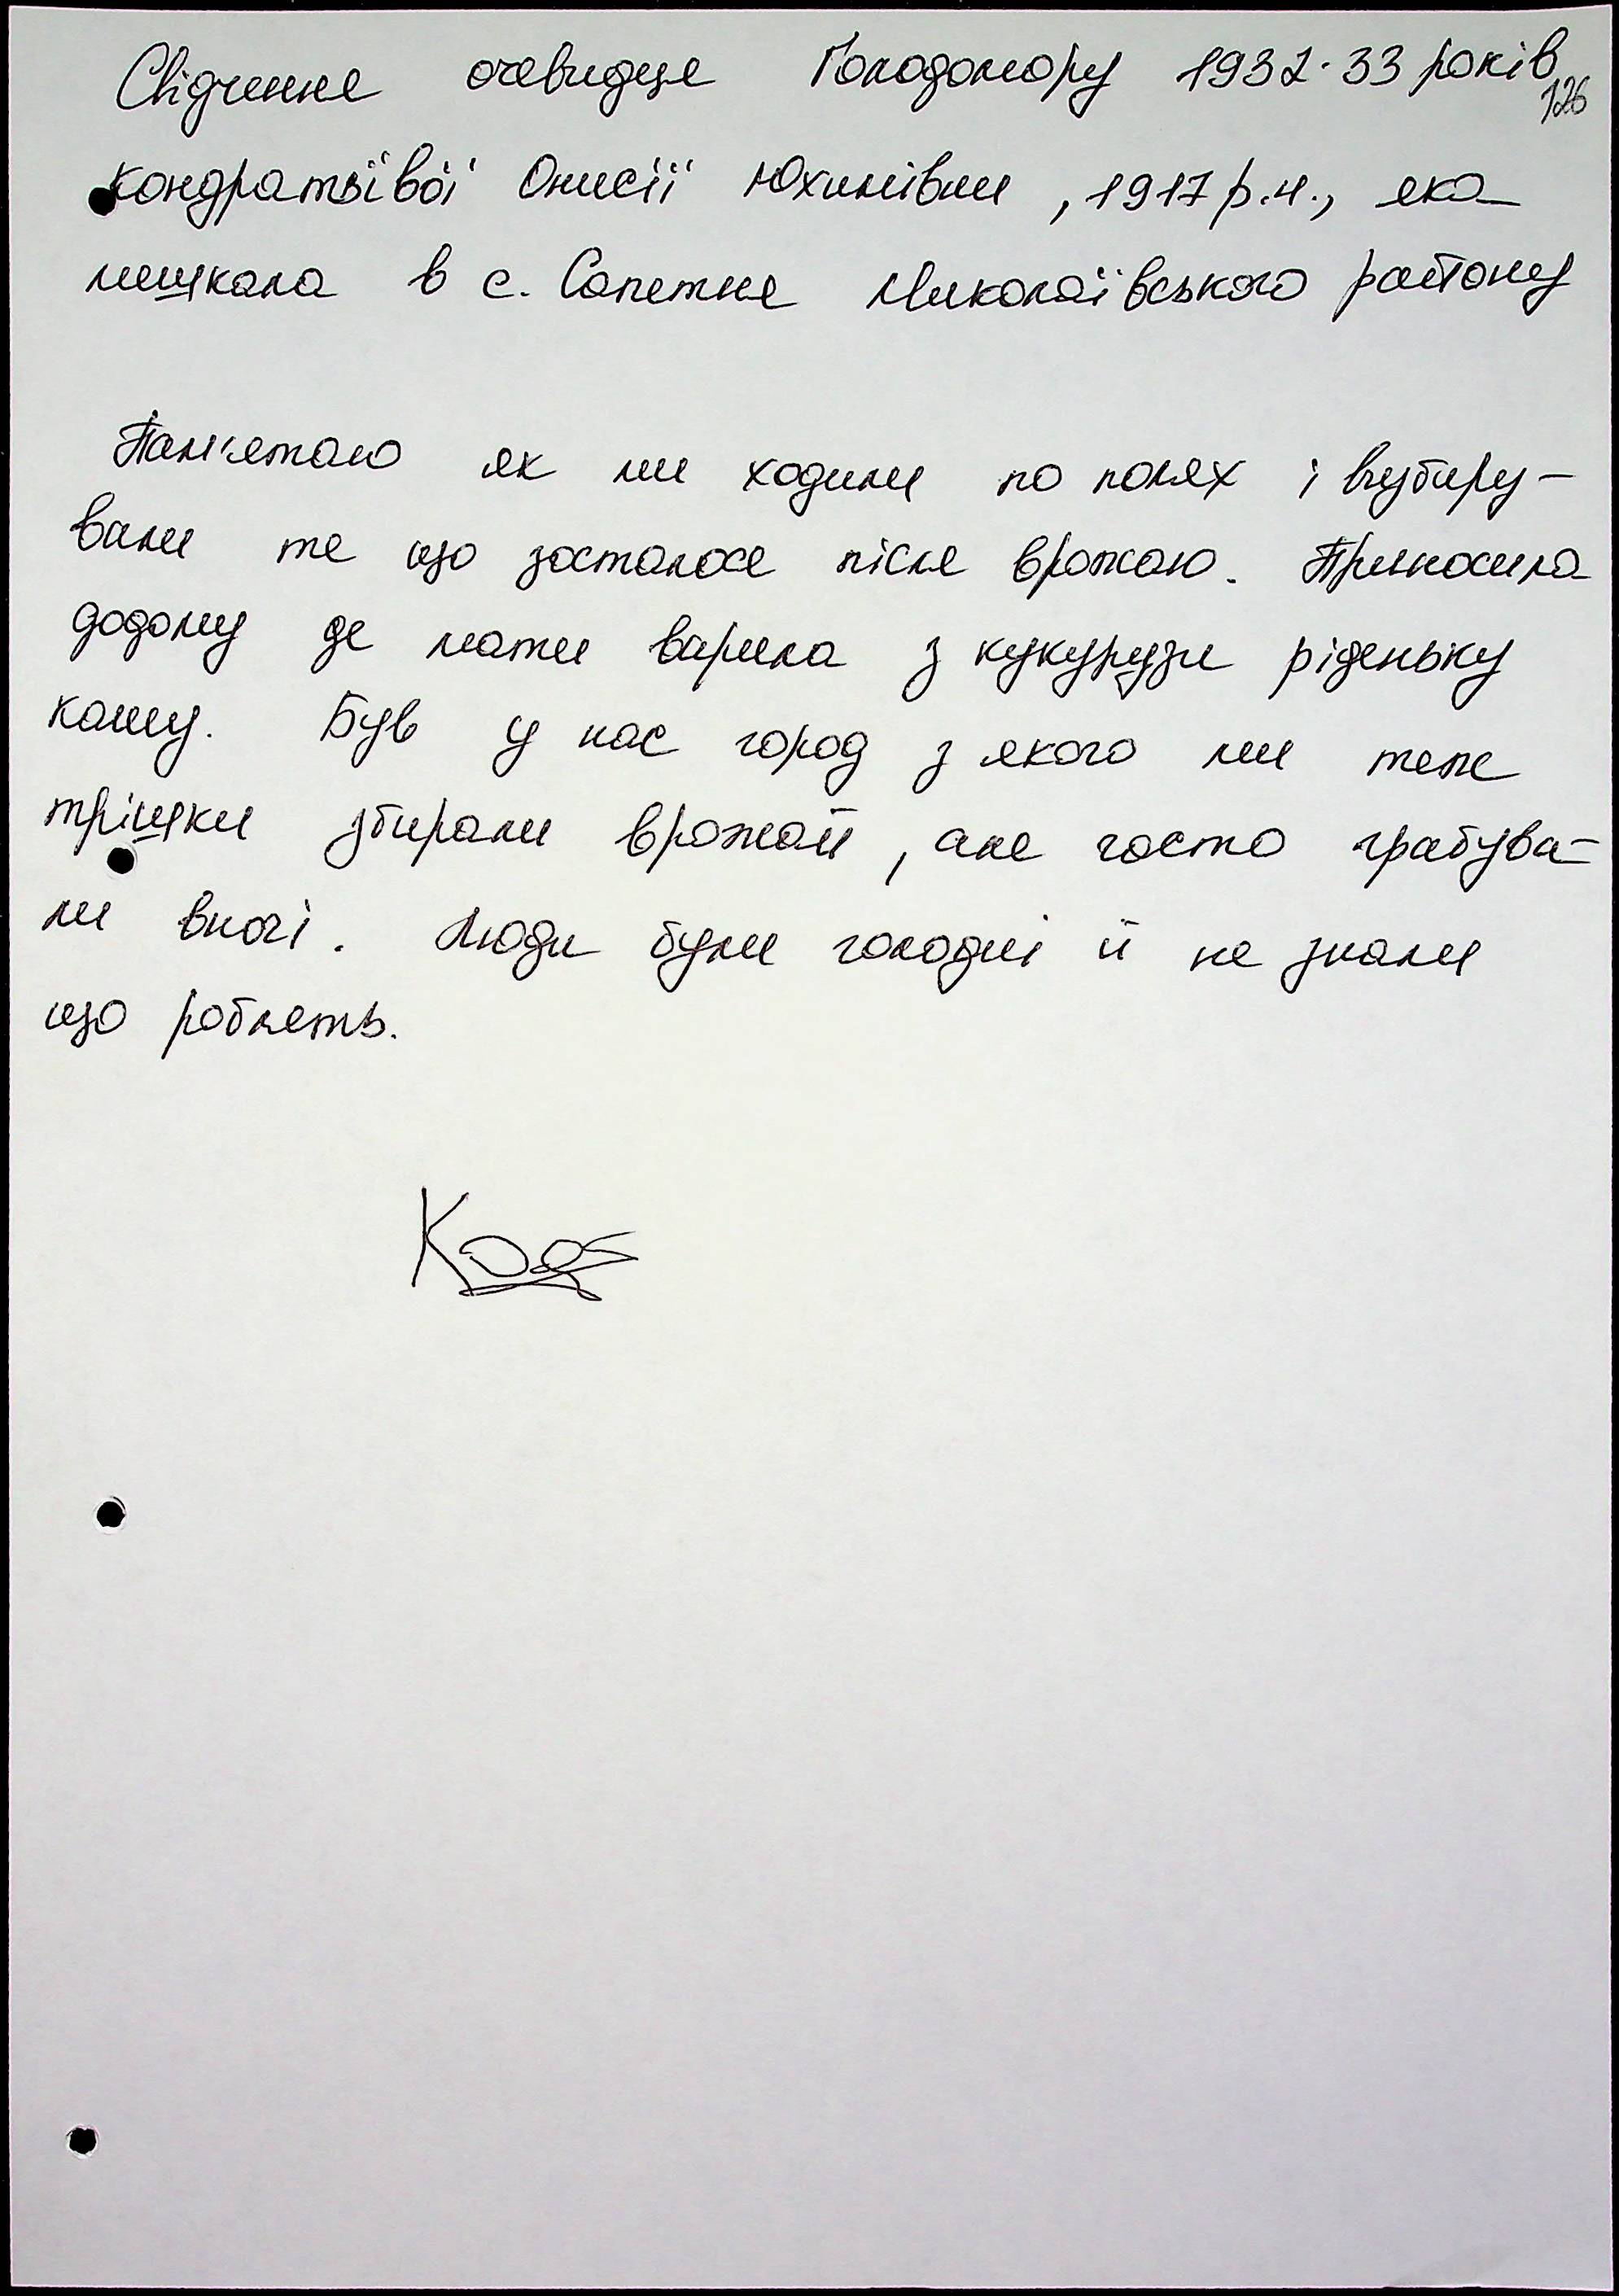 Свідчення очевидця Голодомору 1932-33 років
126
Кондратьївої Онисії Юхимівни, 1917 р.н., яка
мешкала в с. Сапетня Миколаївського району
Пам'ятаю як ми ходили по полях і вибиру-
вали те що зосталося після врожаю. Приносила
додому де мати варила з кукурузи ріденьку
кашу. Був у нас город з якого ми теж
трішки збирали врожай, але часто грабува-
ли вночі. Люди були голодні й не знали
що роблять.